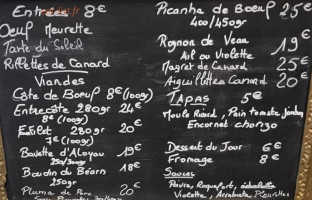 Entrées 8€
Oeuf Meurette
Tarte du Soleil
Rillettes de Canard
Viandes
Côte de Boeuf 8€ (100gr)
Entrecôte 280gr 24€
8€ (100gr)
Faux Filet 280gr 20€
7€ (100gr)
Bavette d'Aloyau 19€
250/300gr
Boudin du Béarn 18€
250gr
Pluma de Porc 20€
Picanha de Boeuf 25€
400/450gr
Rognon de Veau 19€
Ail ou Violette
Magret de Canard 25€
Aiguillettes Canard 20€
Tapas 5€
Moule Ricard, Pain tomate jambon
Encornet chorizo
Dessert du Jour 6€
Fromage 8€
Sauces
Poivre, Roquefort, échalotte
Violette,